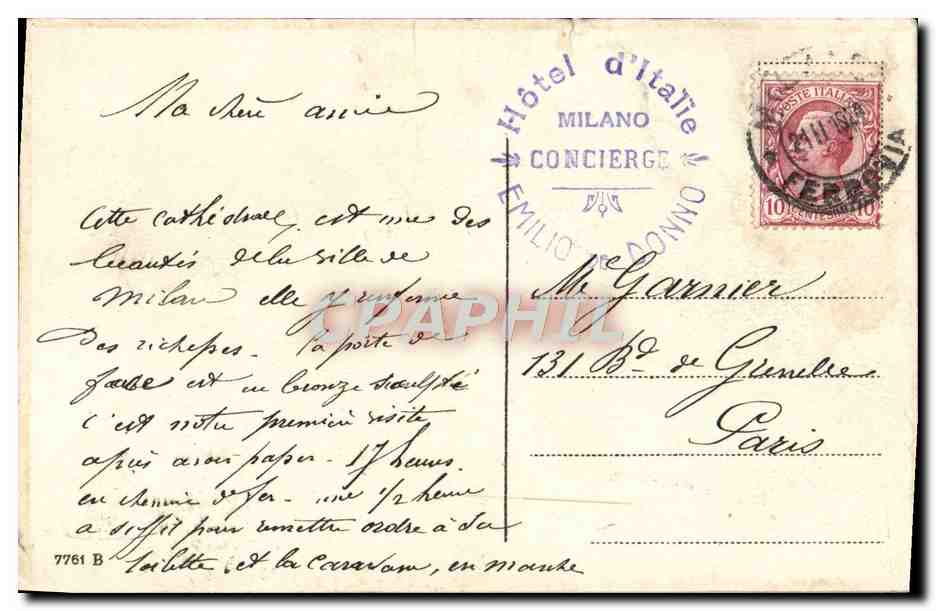 Ma chère amie
Cette cathédrale, est une des
beautés de la ville de
Milan elle y renferme
Des richesses - la porte de
face est en bronze sculpté
c'est notre première visite
après avoir passer - 17 heures
en chemin de fer - une 1/2 heure
a suffit pour remettre ordre à sa
toilette et la caravane, en marche
7761 B
Hôtel d'Italie
MILANO
CONCIERGE
EMILIO CONNO
POSTE ITALIANE
10 CENTESIMI 10
FERROVIA
Me Garnier
131 Bd. de Grenelle
Paris
CPAPHIL